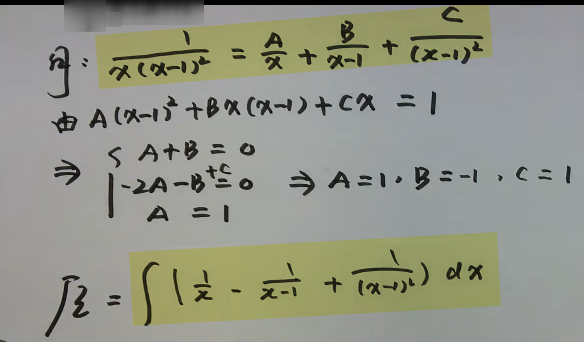 解: 1/(x(x-1)²) = A/x + B/(x-1) + C/(x-1)²
由 A(x-1)² + Bx(x-1) + Cx = 1
⇒ { A+B=0
-2A-B+C=0 ⇒ A=1, B=-1, C=1
A = 1
原 = ∫(1/x - 1/(x-1) + 1/(x-1)²) dx